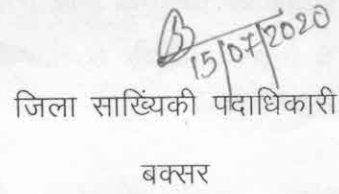 15/07/2020
जिला साख्यिंकी पदाधिकारी
बक्सर